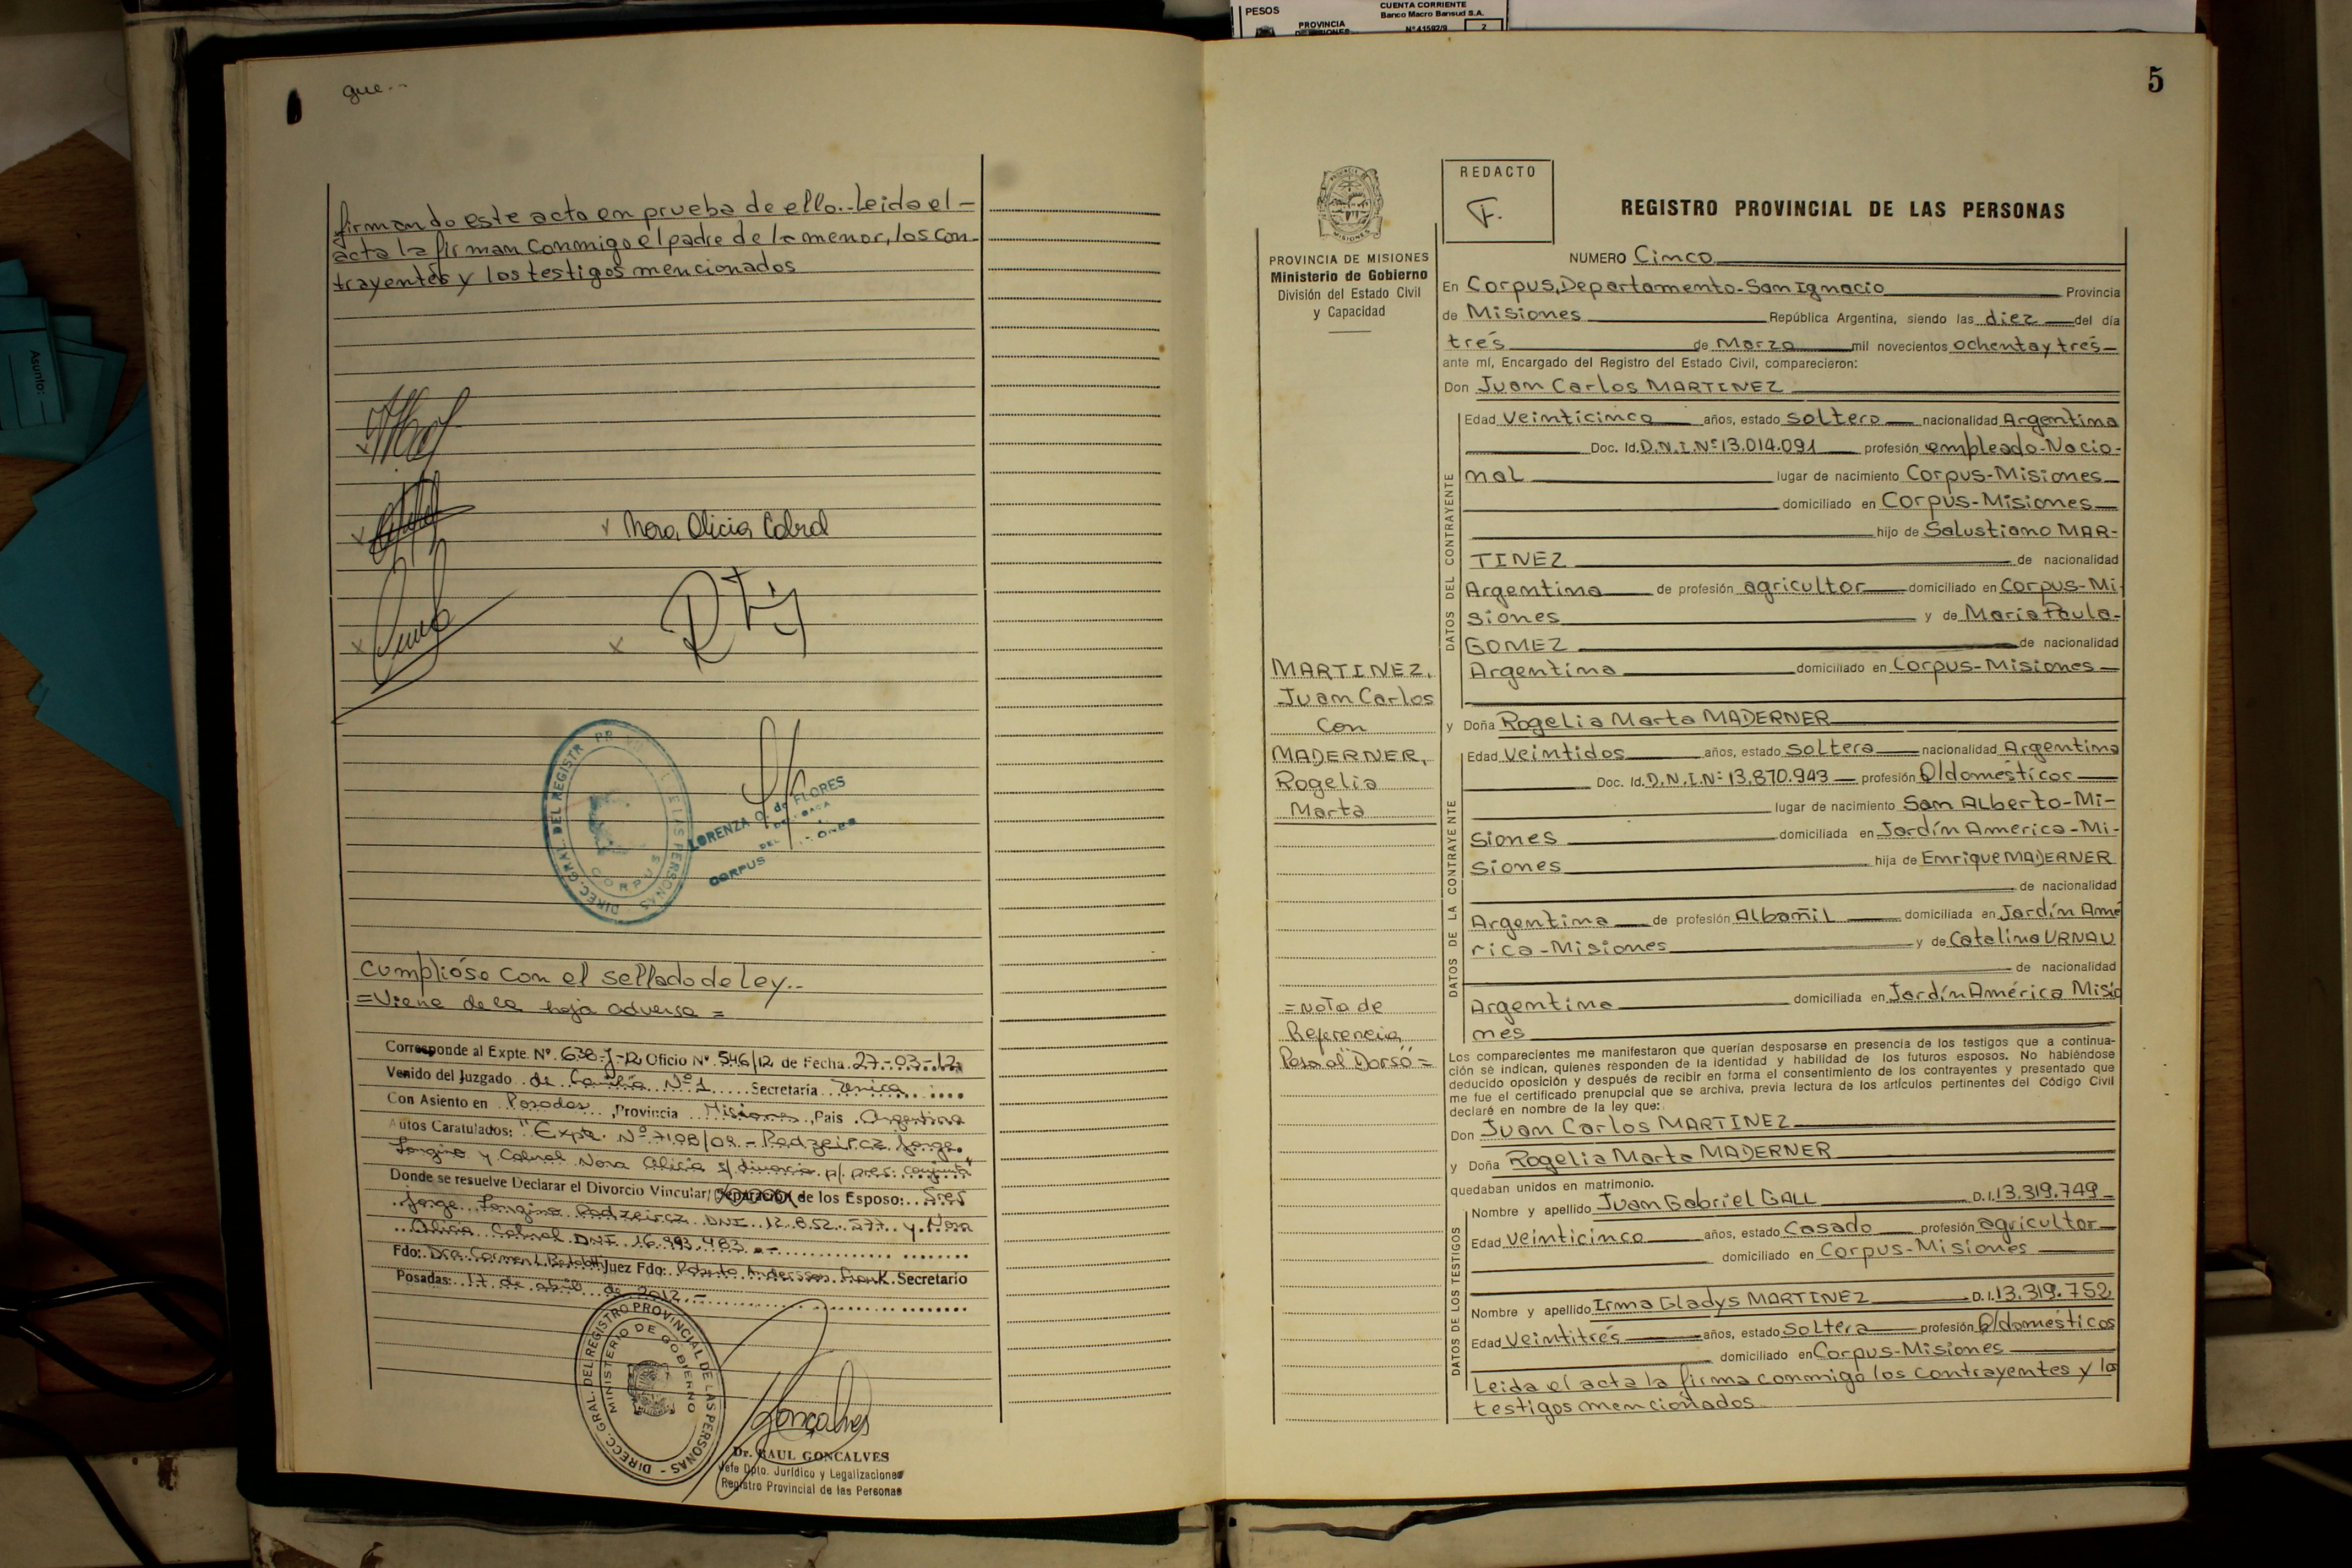 PESOS
CUENTA CORRIENTE
Banco Macro Bansud S.A.
PROVINCIA
DE MISIONES
Nº 41592/9
2
Asunto:
que--
firmando este acto en prueba de ello.-Leida el -
acta la firman conmigo el padre de la menor, los con-
trayentes y los testigos mencionados
x Nora Alicia Cabral
DIREC. GRAL. DEL REGISTR PR DE LAS PERSONAS
CORPUS
LORENZA O. de FLORES
CORPUS
Cumplióse con el sellado de Ley.-
=Viene de la hoja adversa =
Corresponde al Expte. Nº 638-J-12 Oficio Nº 546/12 de Fecha 27-03-12
Venido del Juzgado de Familia Nº 1 Secretaría Unica
Con Asiento en Posadas, Provincia Misiones, País Argentina
Autos Caratulados: "Expte. Nº 7108/08 - Padzeircz Jorge
Longino y Cabral Nora Alicia s/ divorcio p/ pres. conjunta"
Donde se resuelve Declarar el Divorcio Vincular/ Separación de los Esposo: Sres
Jorge Longino Padzeircz DNI 12.852.577 y Nora
Alicia Cabral DNI 16.993.483.-
Fdo: Dra. Carmen L. Juez Fdo: Roberto Andersson Frank Secretario
Posadas: 17 de abril de 2012.-
DIRECC. GRAL. DEL REGISTRO PROVINCIAL DE LAS PERSONAS -
MINISTERIO DE GOBIERNO
Goncalves
Dr. RAUL GONCALVES
Jefe Dpto. Jurídico y Legalizaciones
Registro Provincial de las Personas
5
PROVINCIA DE MISIONES
Ministerio de Gobierno
División del Estado Civil
y Capacidad
MARTINEZ,
Juan Carlos
con
MADERNER,
Rogelia
Marta
=Nota de
Referencia
Pasa al Dorso=
REDACTO
F.
REGISTRO PROVINCIAL DE LAS PERSONAS
NUMERO Cinco
En Corpus, Departamento-San Ignacio Provincia
de Misiones República Argentina, siendo las diez del día
trés de Marzo mil novecientos ochenta y trés-
ante mí, Encargado del Registro del Estado Civil, comparecieron:
Don Juan Carlos MARTINEZ
DATOS DEL CONTRAYENTE
Edad Veinticinco años, estado soltero nacionalidad Argentina
Doc. Id. D.N.I.Nº 13.014.091 profesión empleado-Nacio-
nal lugar de nacimiento Corpus-Misiones
domiciliado en Corpus-Misiones
hijo de Salustiano MAR-
TINEZ de nacionalidad
Argentina de profesión agricultor domiciliado en Corpus-Mi-
siones y de María Paula-
GOMEZ de nacionalidad
Argentina domiciliado en Corpus-Misiones
y Doña Rogelia Marta MADERNER
DATOS DE LA CONTRAYENTE
Edad Veintidos años, estado soltera nacionalidad Argentina
Doc. Id. D.N.I.Nº 13.870.943 profesión Q/domésticos
lugar de nacimiento San Alberto-Mi-
siones domiciliada en Jardín America-Mi-
siones hija de Enrique MADERNER
de nacionalidad
Argentina de profesión Albañil domiciliada en Jardín Amé
rica-Misiones y de Catalina URNAU
de nacionalidad
Argentina domiciliada en Jardín América Misio
nes
Los comparecientes me manifestaron que querían desposarse en presencia de los testigos que a continua-
ción se indican, quienes responden de la identidad y habilidad de los futuros esposos. No habiéndose
deducido oposición y después de recibir en forma el consentimiento de los contrayentes y presentado que
me fue el certificado prenupcial que se archiva, previa lectura de los artículos pertinentes del Código Civil
declaré en nombre de la ley que:
Don Juan Carlos MARTINEZ
y Doña Rogelia Marta MADERNER
quedaban unidos en matrimonio.
DATOS DE LOS TESTIGOS
Nombre y apellido Juan Gabriel GALL D.I. 13.319.749
Edad Veinticinco años, estado Casado profesión agricultor
domiciliado en Corpus-Misiones
Nombre y apellido Irma Gladys MARTINEZ D.I. 13.319.752
Edad Veintitrés años, estado Soltera profesión Q/domésticos
domiciliado en Corpus-Misiones
Leida el acta la firma conmigo los contrayentes y los
testigos mencionados